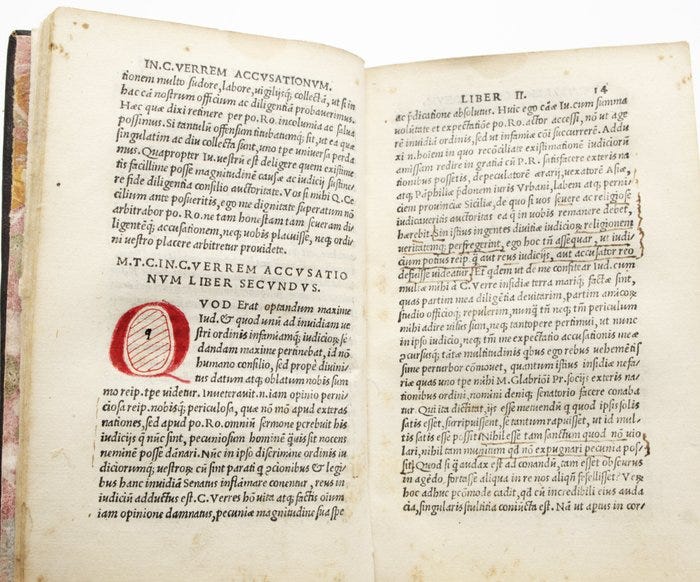 IN.C.VERREM ACCVSATIONVM.
tionem multo sudore, labore, uigilijsq; collectā, ut si in
hac cā nostrum officium ac diligentiā probauerimus.
Hæc quæ dixi retinere per po.Ro. incolumia ac salua
possimus. Si tantulū offensum titubatumq; sit, ut ea quæ
singulatim ac diu collecta sunt, uno tpe uniuersa perda
mus. Quapropter Iu. uestrū est deligere quem existime
tis facillime posse magnitudinē causæ ac iudicij sustine
re fide diligentia consilio auctoritate. Vos si mihi Q.Ce
cilium ante posueritis, ego me dignitate superatum nō
arbitrabor po. Ro. ne tam honestam tam seueram di
ligentēq; accusationem, neq; uobis placuisse, neq; ordi
ni uestro placere arbitretur prouidete.
M.T.C.IN C.VERREM ACCVSATIO
NVM LIBER SECVNDVS.
q VOD Erat optandum maxime
Iud. & quod unū ad inuidiam ue
stri ordinis infamiāq; iudiciorū se
dandam maxime pertinebat, id nō
humano consilio, sed propè diuini
tus datum atq; oblatum nobis sum
mo reip. tpe uidetur. Inueterauit.n.iam opinio perni
ciosa reip. nobisq; periculosa, quæ nō mō apud exteras
nationes, sed apud po. Ro. omniū sermone pcrebuit his
iudicijs q̄ nūc sint, pecuniosum hominē q̄uis sit nocens
neminē posse dānari. Nūc in ipso discrimine ordinis iu
diciorumq; uestrorū cū sint parati q cōcionibus & legi
bus hanc inuidiā Senatus inflāmare conentur, reus in
iudiciū adductus est. C. Verres hō uita atq; factis oīum
iam opinione damnatus, pecuniæ magnitudine sua spe
LIBER II. 14
ac p̄dicatione absolutus. Huic ego cāæ Iu. cum summa
uolūtate et expectatiōe po.Ro. actor accessi, nō ut age
rē inuidiā ordinis, sed ut infamiæ cōi succurrerē. Addu
xi.n.hoīem in quo recōciliare existimationē iudiciorū
amissam redire in gratiā cū P.R. satisfacere exteris na
tionibus possetis, depeculatorē ærarij, uexatorē Asiæ,
atq; Pāphiliæ p̄donem iuris Vrbani, labem atq; perni
ciem prouinciæ Siciliæ, de quo si uos seuere ac religiose
iudicaueritis auctoritas ea q̄ in uobis remanere debet,
hærebit. Sin istius ingentes diuitiæ iudiciorū religionem
ueritatemq; perfregerint, ego hoc tn̄ assequar, ut iudi
cium potius reip. q̄ aut reus iudicijs, aut accusator reo
defuisse uideatur. Et qdem ut de me cōfitear Iud. cum
multæ mihi à C. Verre insidiæ terra mariq; factæ sint,
quas partim mea diligentia deuitarim, partim amicorū
studio officioq; repulerim, nunq̄ tn̄ neq; tm̄ periculum
mihi adire uisus sum, neq; tantopere pertimui, ut nunc
in ipso iudicio, neq; tm̄ me expectatio accusationis meæ
cursusq; tātæ multitudinis qbus ego rebus uehemētis
sime perturbor cōmouet, quantum istius insidiæ nefa
riæ quas uno tpe mihi M.Glabriōi Pr. socijs exteris na
tionibus ordini, nomini deniq; senatorio facere conaba
tur. Qui ita dictitat ijs esse metuendū q quod ipsis solis
satis esset, surripuissent, se tantum rapuisset, ut id mul-
tis satis esse possit. Nihil esse tam sanctum quod nō uio
lari, nihil tam munitum qd nō expugnari pecunia pos
sit. Quod si q̄ audax est ad conandū, tam esset obscurus
in agēdo, fortasse aliqua in re nos aliqn̄ fefellisset? Verū
hoc adhuc pcōmode cadit, qd cū incredibili eius auda
cia, singularis stultitia coniūcta est. Nā ut apius in cor-